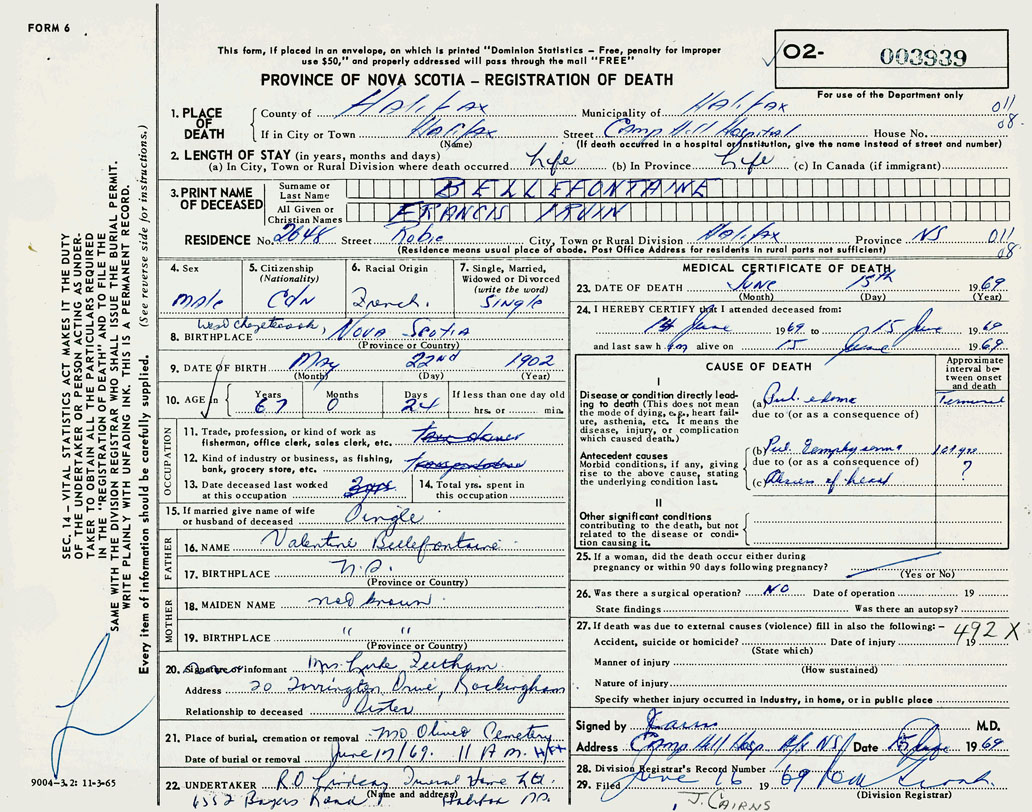 FORM 6
This form, if placed in an envelope, on which is printed "Dominion Statistics – Free, penalty for improper
use $50," and properly addressed will pass through the mail "FREE"
PROVINCE OF NOVA SCOTIA – REGISTRATION OF DEATH
O2- 003939
For use of the Department only
SEC. 14 – VITAL STATISTICS ACT MAKES IT THE DUTY
OF THE UNDERTAKER OR PERSON ACTING AS UNDER-
TAKER TO OBTAIN ALL THE PARTICULARS REQUIRED
IN THE "REGISTRATION OF DEATH" AND TO FILE THE
SAME WITH THE DIVISION REGISTRAR WHO SHALL ISSUE THE BURIAL PERMIT.
WRITE PLAINLY WITH UNFADING INK. THIS IS A PERMANENT RECORD.
Every item of information should be carefully supplied. (See reverse side for instructions.)
1. PLACE OF DEATH
County of Halifax Municipality of Halifax 011
If in City or Town Halifax Street Camp Hill Hospital House No. 08
(Name) (If death occurred in a hospital or institution, give the name instead of street and number)
2. LENGTH OF STAY (in years, months and days)
(a) In City, Town or Rural Division where death occurred Life (b) In Province Life (c) In Canada (if immigrant)
3. PRINT NAME OF DECEASED
Surname or Last Name BELLEFONTAINE
All Given or Christian Names FRANCIS IRVIN
RESIDENCE No. 2648 Street Robie City, Town or Rural Division Halifax Province NS 011
(Residence means usual place of abode. Post Office Address for residents in rural parts not sufficient) 08
4. Sex male
5. Citizenship (Nationality) Cdn
6. Racial Origin French
7. Single, Married, Widowed or Divorced (write the word) Single
West Chezetcook,
8. BIRTHPLACE Nova Scotia
(Province or Country)
9. DATE OF BIRTH May 22nd 1902
(Month) (Day) (Year)
10. AGE in Years 67 Months 0 Days 24 If less than one day old hrs. or min.
OCCUPATION
11. Trade, profession, or kind of work as
fisherman, office clerk, sales clerk, etc.
12. Kind of industry or business, as fishing,
bank, grocery store, etc.
13. Date deceased last worked
at this occupation
14. Total yrs. spent in
this occupation
15. If married give name of wife
or husband of deceased Single
FATHER
16. NAME Valentine Bellefontaine
17. BIRTHPLACE N.S.
(Province or Country)
MOTHER
18. MAIDEN NAME not known
19. BIRTHPLACE " "
(Province or Country)
20. Signature of informant Mrs. Luke Feetham
Address 20 Torrington Drive, Rockingham
Relationship to deceased Sister
21. Place of burial, cremation or removal Mo Olivet Cemetery
Date of burial or removal June 17/69. 11 A.M. Hfx
22. UNDERTAKER R.D. Lindsay Funeral Home Ltd.
(Name and address)
6552 Bayers Road Halifax NS.
9004–3.2: 11-3-65
MEDICAL CERTIFICATE OF DEATH
23. DATE OF DEATH June 15th 1969
(Month) (Day) (Year)
24. I HEREBY CERTIFY that I attended deceased from:
14 June 1969 to 15 June 1969
and last saw him alive on 15 June 1969
CAUSE OF DEATH
Approximate interval between onset and death
I
Disease or condition directly leading to death (This does not mean the mode of dying, e.g., heart failure, asthenia, etc. It means the disease, injury, or complication which caused death.)
(a) Pul. edema Terminal
due to (or as a consequence of)
Antecedent causes
Morbid conditions, if any, giving rise to the above cause, stating the underlying condition last.
(b) Pul. Emphysema 10 Yr
due to (or as a consequence of) ?
(c) of heart
II
Other significant conditions
contributing to the death, but not related to the disease or condition causing it.
25. If a woman, did the death occur either during
pregnancy or within 90 days following pregnancy?
(Yes or No)
26. Was there a surgical operation? NO Date of operation 19
State findings Was there an autopsy?
27. If death was due to external causes (violence) fill in also the following: – 492 X
Accident, suicide or homicide? Date of injury 19
(State which)
Manner of injury
(How sustained)
Nature of injury
Specify whether injury occurred in industry, in home, or in public place
Signed by Cairns M.D.
Address Camp Hill Hosp. Hfx NS Date 15 June 1969
28. Division Registrar's Record Number
29. Filed June 16 1969
(Division Registrar)
J. CAIRNS